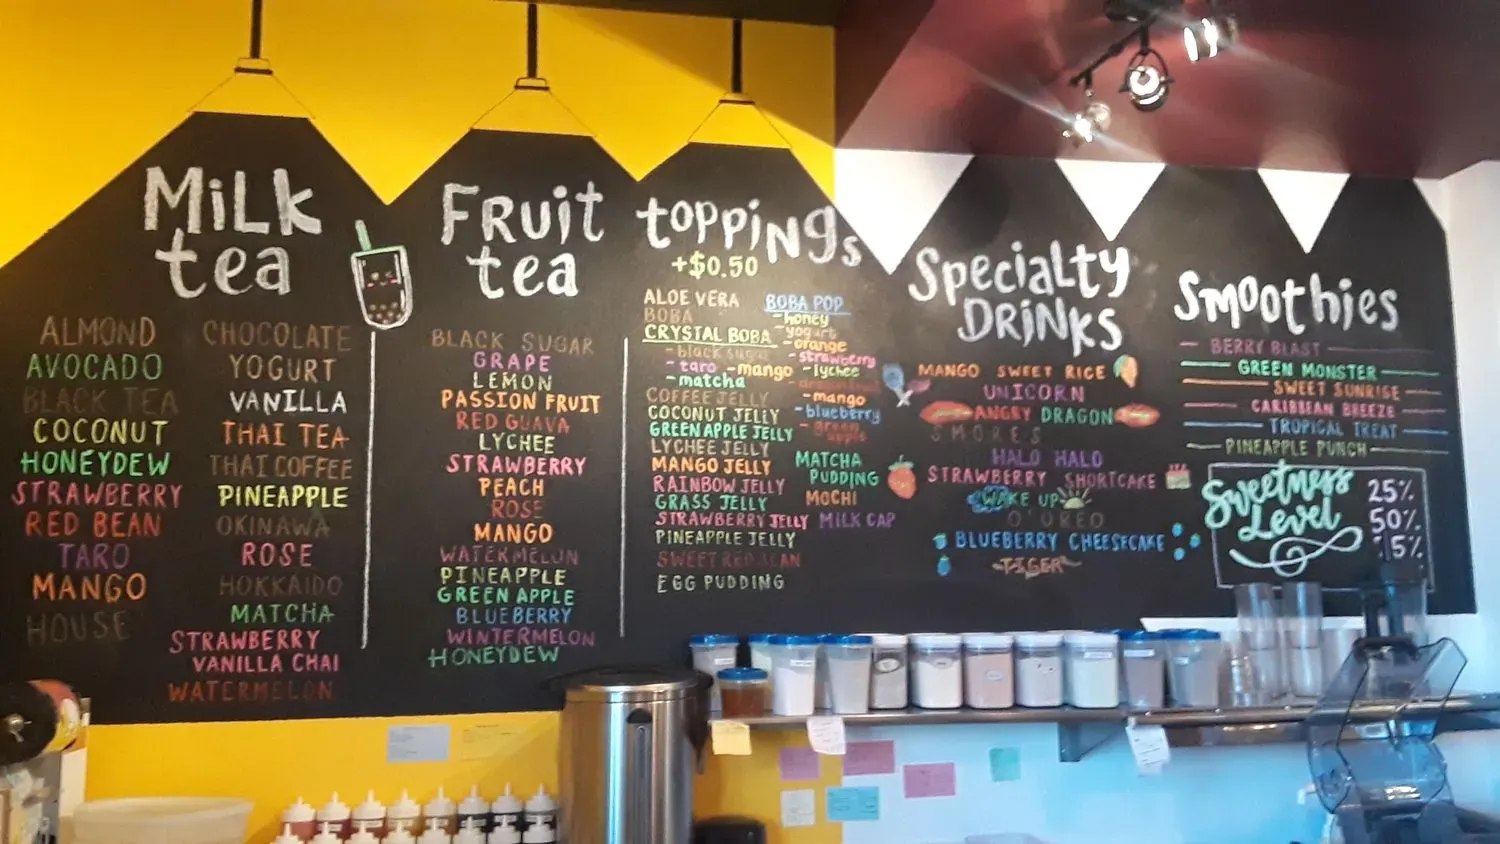 MiLk
tea
ALMOND
AVOCADO
BLACK TEA
COCONUT
HONEYDEW
STRAWBERRY
RED BEAN
TARO
MANGO
HOUSE
CHOCOLATE
YOGURT
VANILLA
THAI TEA
THAI COFFEE
PINEAPPLE
OKINAWA
ROSE
HOKKAIDO
MATCHA
STRAWBERRY
VANILLA CHAI
WATERMELON
FRuit
tea
BLACK SUGAR
GRAPE
LEMON
PASSION FRUIT
RED GUAVA
LYCHEE
STRAWBERRY
PEACH
ROSE
MANGO
WATERMELON
PINEAPPLE
GREEN APPLE
BLUEBERRY
WINTERMELON
HONEYDEW
toppiNgs
+$0.50
ALOE VERA
BOBA
CRYSTAL BOBA
-black sugar
-taro -mango
-matcha
COFFEE JELLY
COCONUT JELLY
GREEN APPLE JELLY
LYCHEE JELLY
MANGO JELLY
RAINBOW JELLY
GRASS JELLY
STRAWBERRY JELLY
PINEAPPLE JELLY
SWEET RED BEAN
EGG PUDDING
BOBA POP
-honey
-yogurt
-orange
-strawberry
-lychee
-dragonfruit
-mango
-blueberry
-green
apple
MATCHA
PUDDING
MOCHI
MILK CAP
SpeciaLty
DRiNKS
MANGO SWEET RICE
UNICORN
ANGRY DRAGON
SMORES
HALO HALO
STRAWBERRY SHORTCAKE
WAKE UP
O'OREO
BLUEBERRY CHEESECAKE
-TIGER-
SMoothies
BERRY BLAST
GREEN MONSTER
SWEET SUNRISE
CARIBBEAN BREEZE
TROPICAL TREAT
PINEAPPLE PUNCH
Sweetness
Level
25%
50%